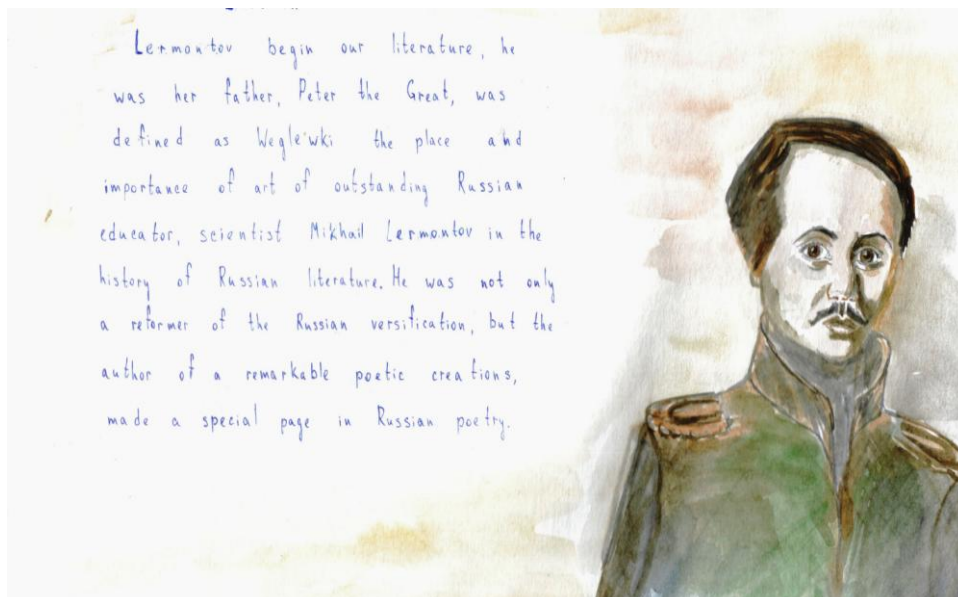 Lermontov begin our literature, he
was her father, Peter the Great, was
defined as Weglewki the place and
importance of art of outstanding Russian
educator, scientist Mikhail Lermontov in the
history of Russian literature. He was not only
a reformer of the Russian versification, but the
author of a remarkable poetic creations,
made a special page in Russian poetry.